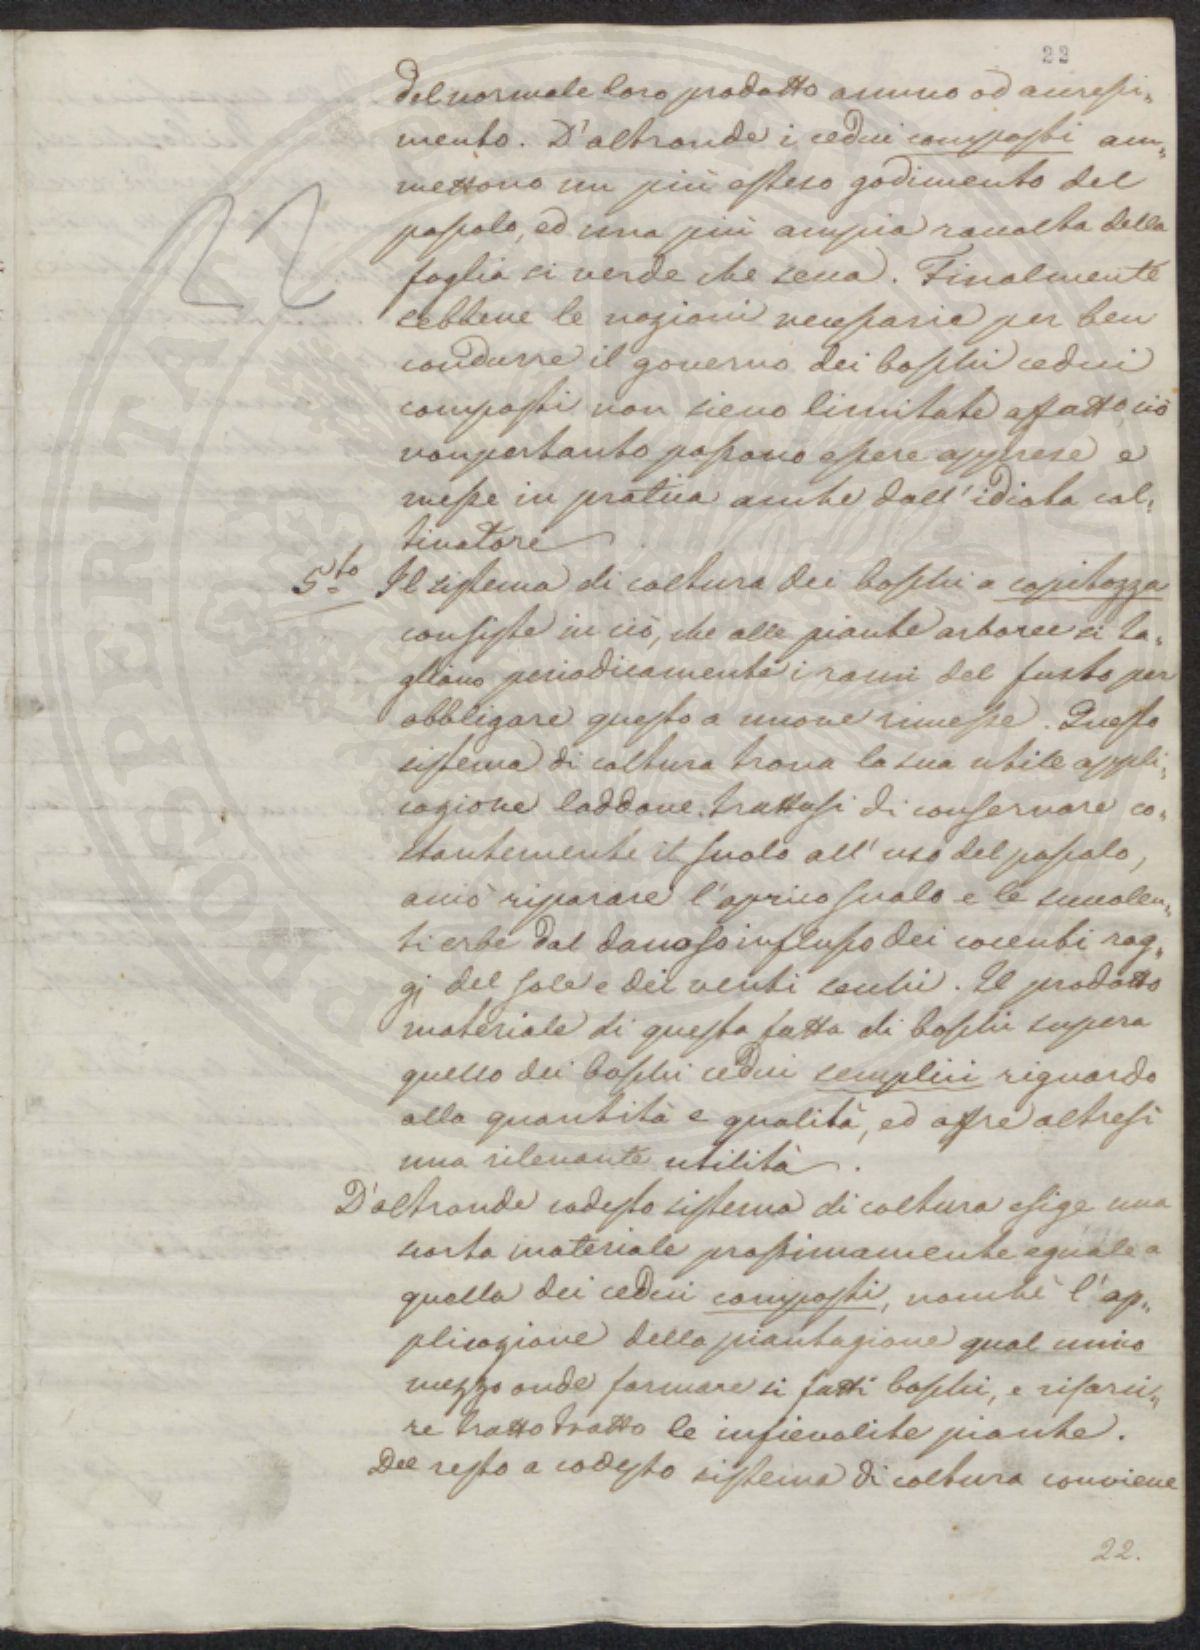 22
del normale loro prodotto annuo od accresci„
mento. D'altronde i cedui composti am„
mettono un più esteso godimento del
pascolo, ed una più ampia raccolta della
foglia si verde che secca. Finalmente
sebbene le nozioni necessarie per ben
condurre il governo dei boschi cedui
composti non sieno limitate affatto, ciò
nonpertanto possono essere apprese e
messe in pratica anche dall' idiota col„
tivatore.
5.to Il sistema di coltura dei boschi a capitozza
consiste in ciò, che alle piante arboree si ta„
gliano periodicamente i rami del fusto per
obbligare questo a nuove rimesse. Questo
sistema di coltura trova la sua utile appli„
cazione laddove trattasi di conservare co„
stantemente il suolo all' uso del pascolo,
acciò riparare l'aprico suolo e le succolen„
ti erbe dal dannoso influsso dei cocenti rag„
gj del sole e dei venti secchi. Il prodotto
materiale di questa fatta di boschi supera
quello dei boschi cedui semplici riguardo
alla quantità e qualità, ed offre altresì
una rilevante utilità.
D'altronde codesto sistema di coltura esige una
scorta materiale prossimamente eguale a
quella dei cedui composti, nonché l'ap„
plicazione della piantagione qual unico
mezzo onde formare si fatti boschi, e risarci„
re tratto tratto le infievolite piante.
Del resto a codesto sistema di coltura conviene
22.
PROSPERITATI